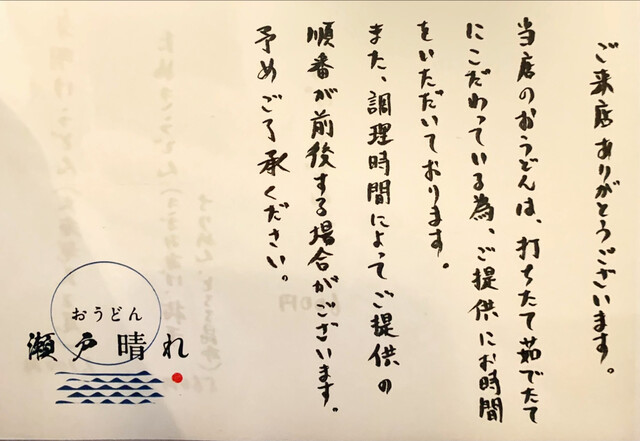 ご来店ありがとうございます。
当店のおうどんは、打ちたて茹でたて
にこだわっている為、ご提供にお時間
をいただいております。
また、調理時間によってご提供の
順番が前後する場合がございます。
予めご了承ください。
おうどん
瀬戸晴れ